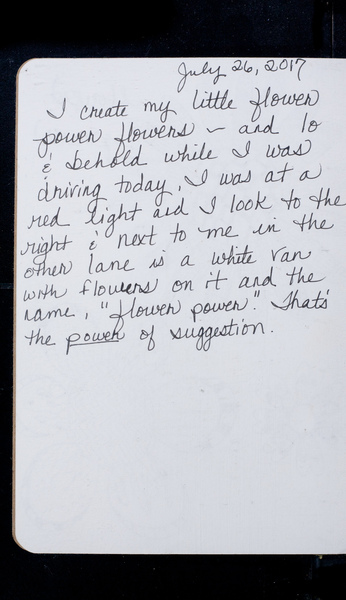 July 26, 2017
I create my little flower
power flowers ~ and lo
& behold while I was
driving today, I was at a
red light aid I look to the
right & next to me in the
other lane is a white van
with flowers on it and the
name, "flower power". That's
the power of suggestion.